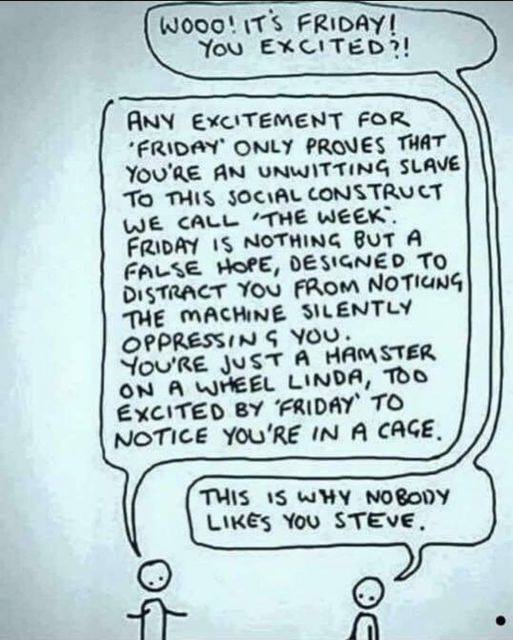 WOOO! IT'S FRIDAY!
YOU EXCITED?!
ANY EXCITEMENT FOR
'FRIDAY' ONLY PROVES THAT
YOU'RE AN UNWITTING SLAVE
TO THIS SOCIAL CONSTRUCT
WE CALL 'THE WEEK'.
FRIDAY IS NOTHING BUT A
FALSE HOPE, DESIGNED TO
DISTRACT YOU FROM NOTICING
THE MACHINE SILENTLY
OPPRESSING YOU.
YOU'RE JUST A HAMSTER
ON A WHEEL LINDA, TOO
EXCITED BY 'FRIDAY' TO
NOTICE YOU'RE IN A CAGE.
THIS IS WHY NOBODY
LIKES YOU STEVE.